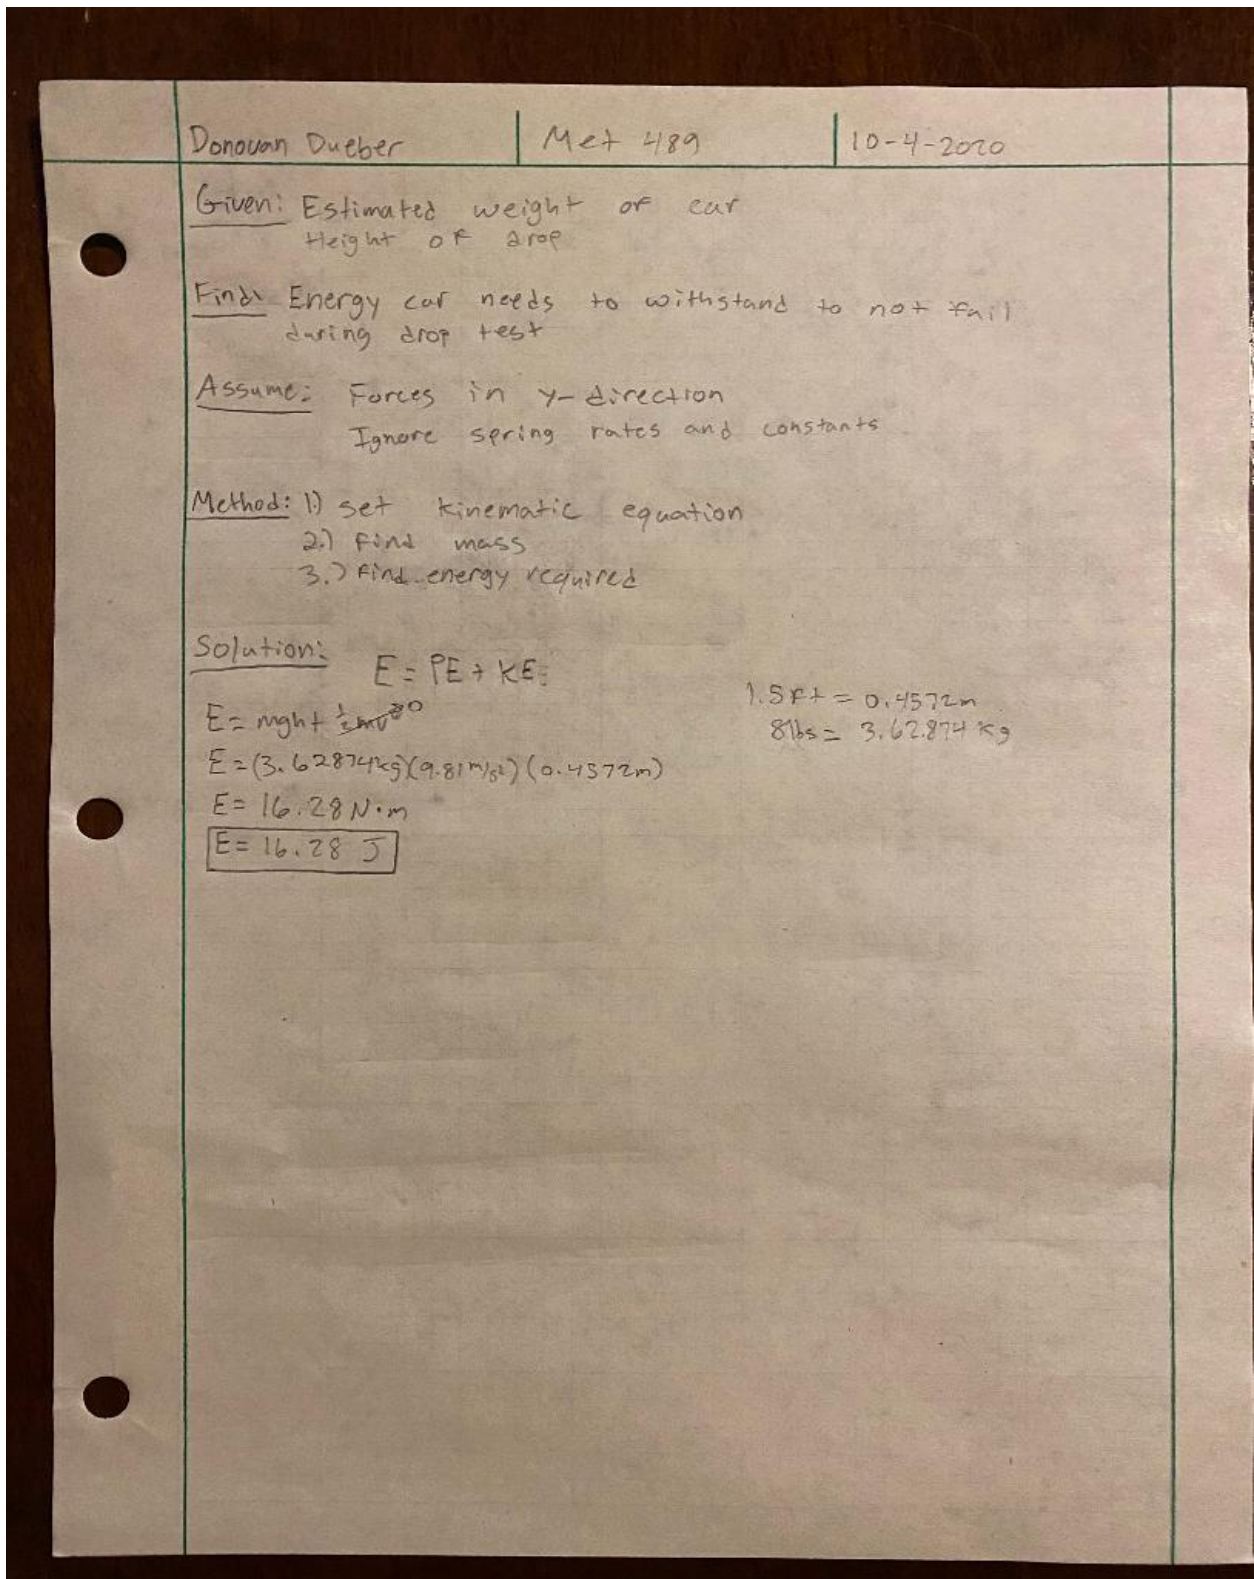 Donovan Dueber Met 489 10-4-2020
Given: Estimated weight of car
Height of drop
Find: Energy car needs to withstand to not fail
during drop test
Assume: Forces in y-direction
Ignore spring rates and constants
Method: 1.) set kinematic equation
2.) Find mass
3.) Find energy required
Solution:
E = PE + KE
1.5 Ft = 0.4572m
E = mgh + ½mv² 0
8lbs = 3.62.874 kg
E = (3.62874kg)(9.81m/s²)(0.4572m)
E = 16.28 N·m
E = 16.28 J